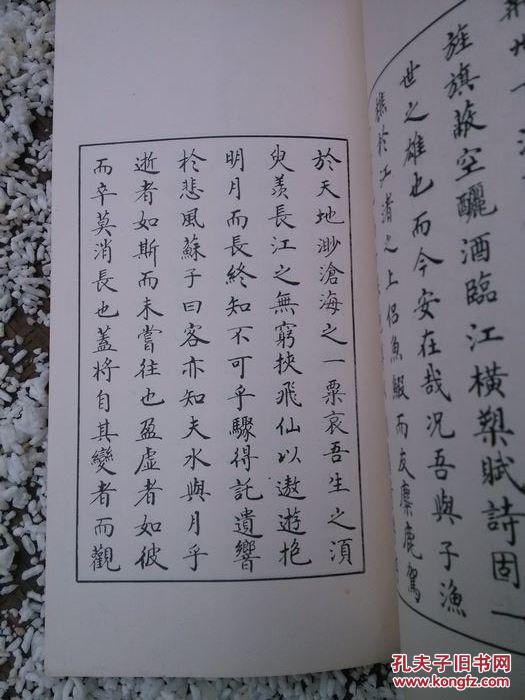 旌旗蔽空釃酒臨江橫槊賦詩固一
世之雄也而今安在哉況吾與子漁
樵於江渚之上侶魚鰕而友麋鹿駕
於天地渺滄海之一粟哀吾生之須
臾羨長江之無窮挾飛仙以遨遊抱
明月而長終知不可乎驟得託遺響
於悲風蘇子曰客亦知夫水與月乎
逝者如斯而未嘗往也盈虛者如彼
而卒莫消長也蓋將自其變者而觀
孔夫子旧书网
www.kongfz.com